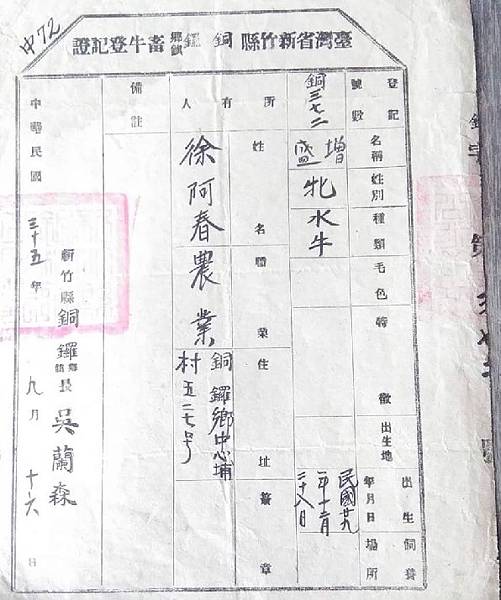 中72
臺灣省新竹縣銅鑼鄉鎮畜牛登記證
登記號數
銅三七二
名稱
增盛
姓別
牝
種類
水牛
毛色
特徵
出生地
出生年月日
民國廿九年十二月二十八日
飼養場所
所有人
姓名
徐阿春
職業
農業
住址
銅鑼鄉忠埔村五二七号
簽章
備註
中華民國三十五年九月十六日
新竹縣銅鑼鄉鎮長吳蘭森